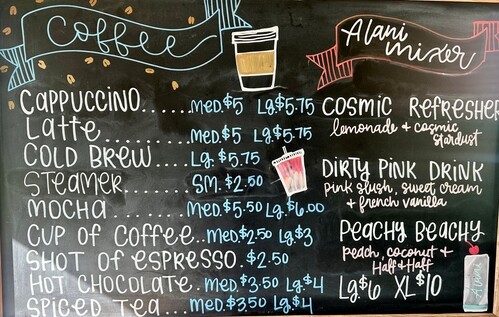 Coffee
CAPPUCCINO......MED.$5 LG.$5.75
LATTE............MED.$5 LG.$5.75
COLD BREW....LG.$5.75
STEAMER........SM.$2.50
MOCHA..........MED.$5.50 LG.$6.00
CUP OF COFFEE..MED.$2.50 LG.$3
SHOT OF ESPRESSO.$2.50
HOT CHOCOLATE.MED.$3.50 LG.$4
SPICED TEA...MED.$3.50 LG.$4
Alani
mixer
COSMIC REFRESHER
lemonade & cosmic
stardust
DIRTY PINK DRINK
pink slush, sweet cream
& french vanilla
PEACHY BEACHY
peach, coconut &
Half & Half
LG.$6 XL $10
Alani